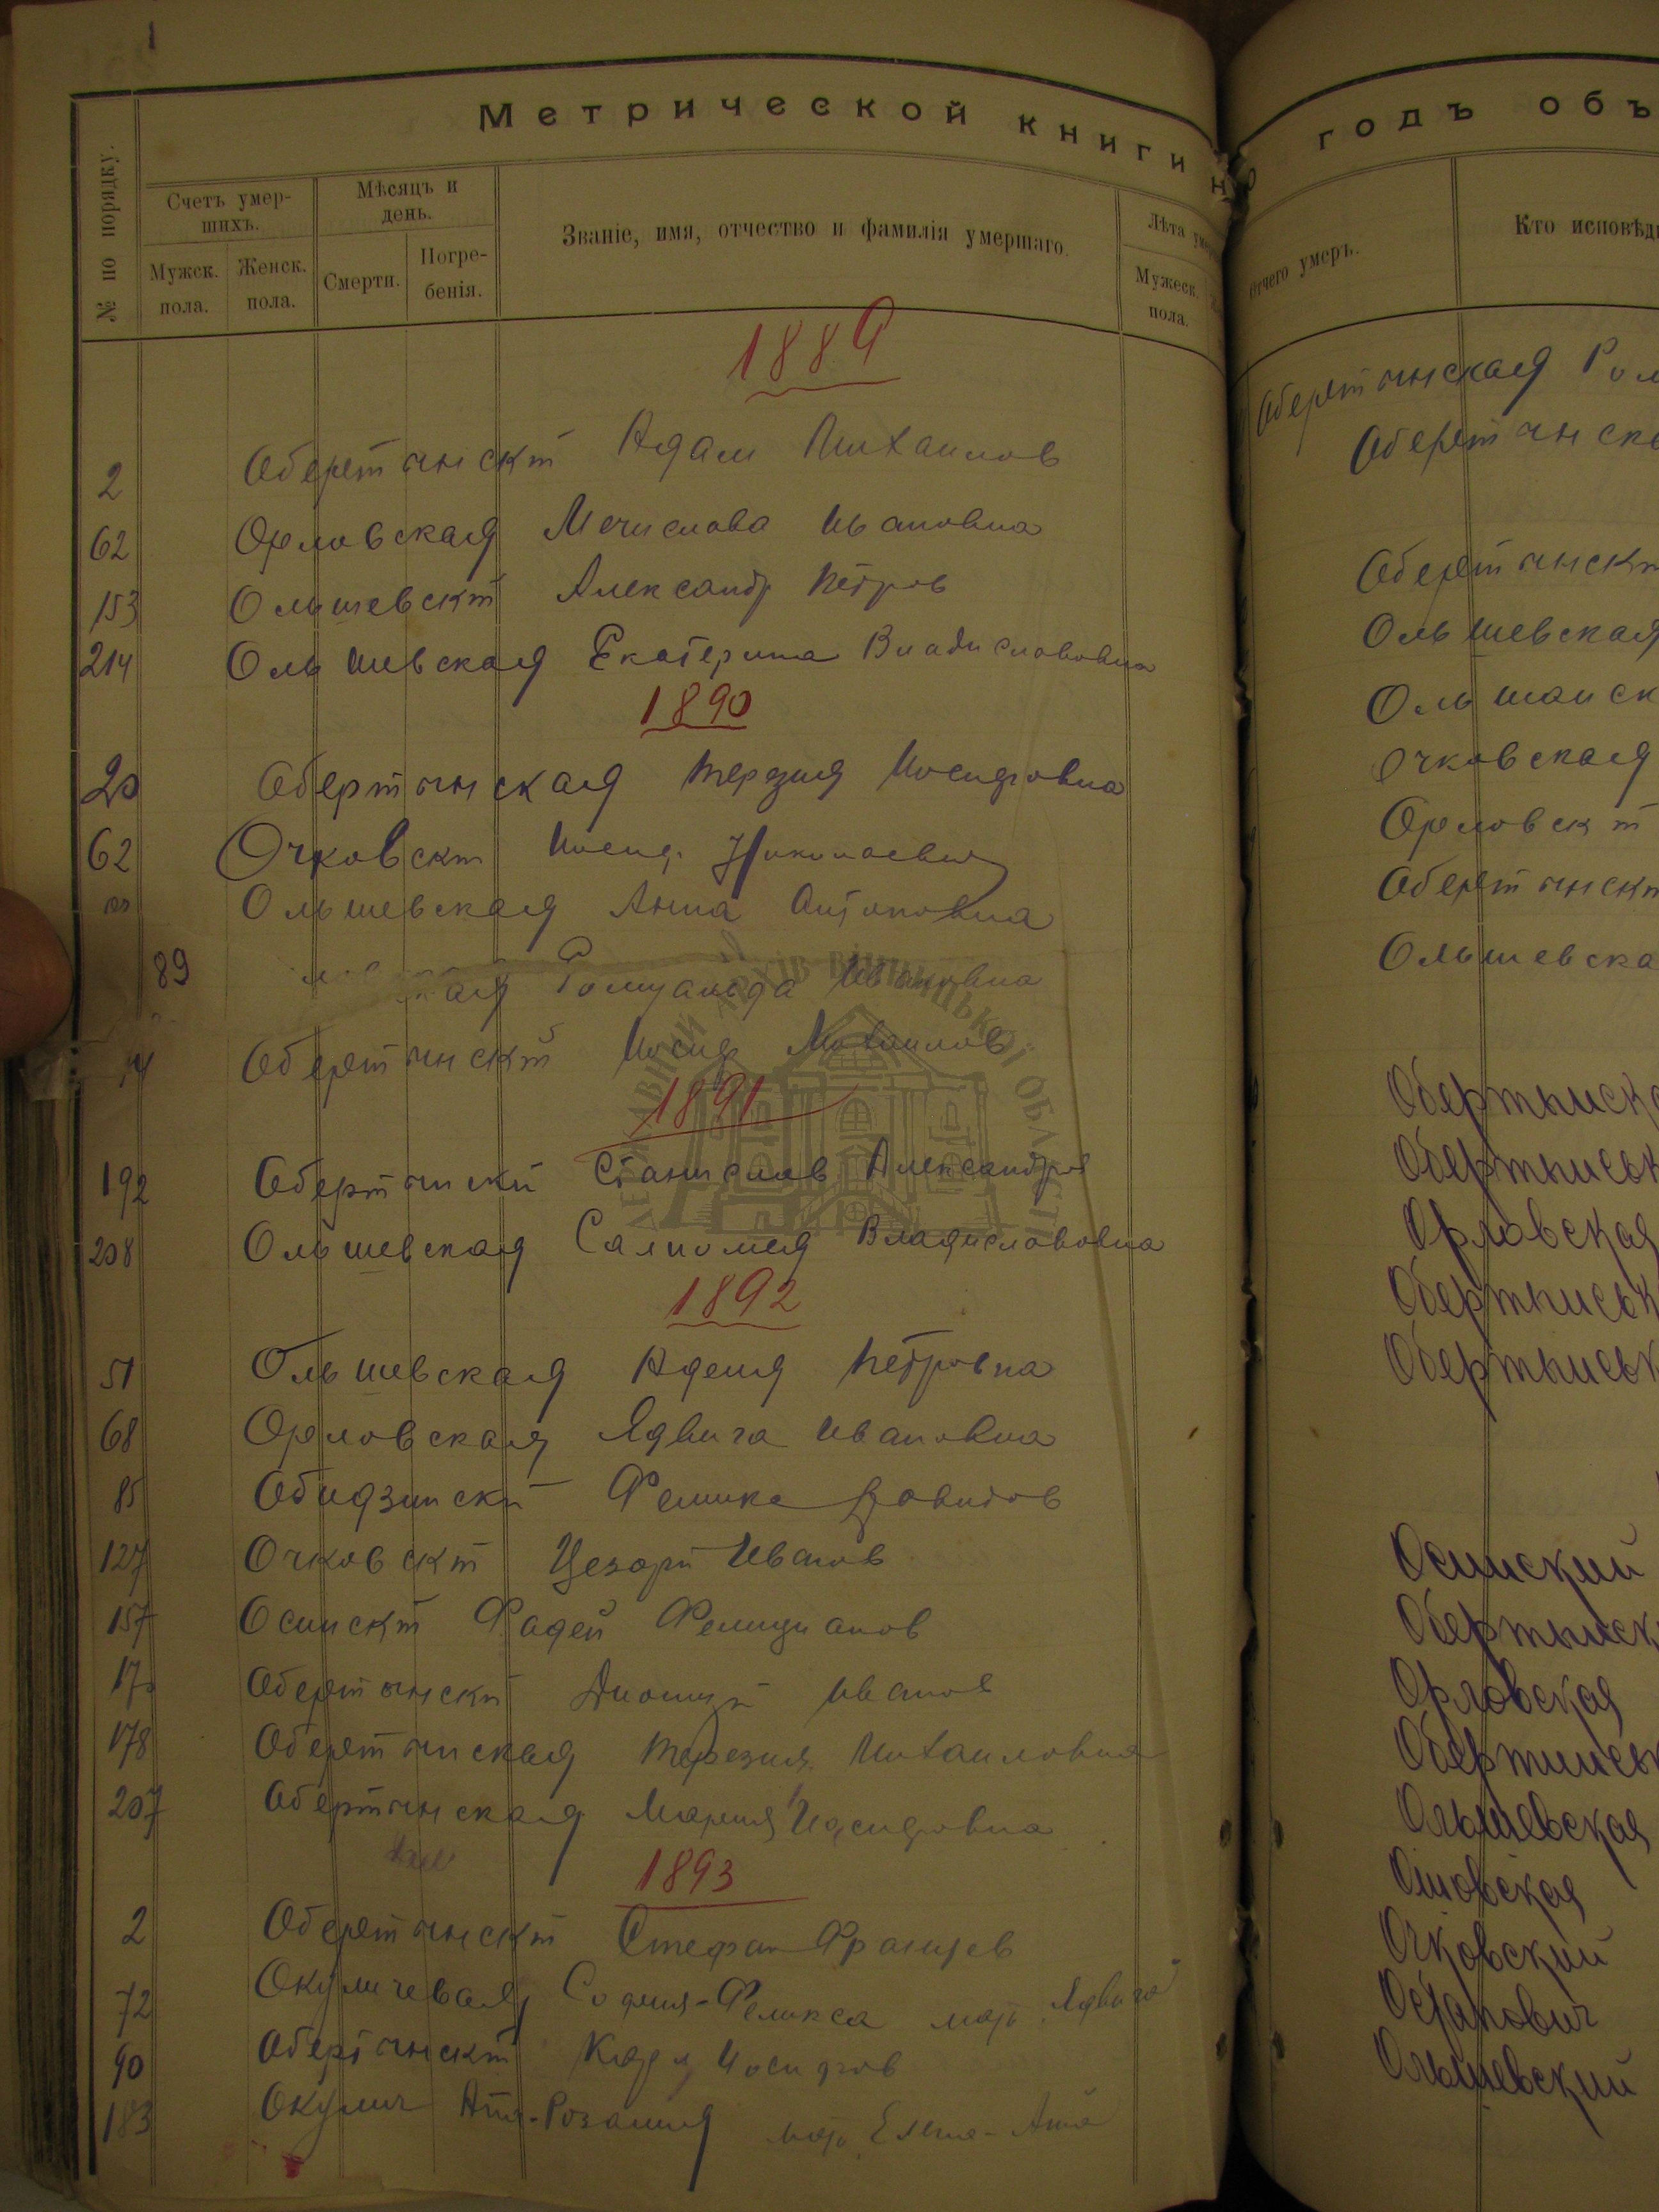 1
Метрической книги
годъ объ
№ по порядку.
Счетъ умер-
шихъ.
Мужск.
пола.
Женск.
пола.
Мѣсяцъ и
день.
Смерти.
Погре-
бенія.
Званіе, имя, отчество и фамилія умершаго.
Лѣта
Мужеск.
пола.
1889
2 Обертынскій Адам Михаилов
62 Орловская Мечислава Ивановна
153 Ольшевскій Александр Петров
214 Ольшевская Екатерина Владиславовна
1890
20 Обертынская Терезия Иосифовна
62 Очковскій Иосиф Николаевич
Ольшевская Анна Антоновна
89 кая Ромуальда Ивановна
Обертынскій Иосиф Михаилов
1891
192 Обертынскій Станислав Александров
208 Ольшевская Саломея Владиславовна
1892
51 Ольшевская Аделя Петровна
68 Орловская Ядвига Ивановна
85 Обидзинскій Феликс Давидов
127 Очковскій Цезарій Иванов
157 Осинскій Фадей Фелицианов
Обертынскій Иванов
178 Обертынская Терезия Михаиловна
207 Обертынская Мария Иосифовна
1893
2 Обертынскій Стефан Францев
72 Окуличевая София-Фелікса мать Ядвига
90 Обертынскій Карл Иосифов
183 Окулич -Розалия мать Елена-Анна
отчего умеръ.
Кто исповѣд
Обертынская Ром
Обертынска
Обертынскі
Ольшевская
Ольшанск
Очковская
Орловскій
Обертынскі
Ольшевска
Обертынска
Обертынськ
Орловская
Обертынськ
Обертынськ
Осинский
Обертынск
Орловская
Обертинськ
Ольшевская
Очковский
Остапович
Ольшевский